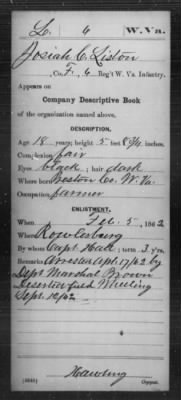 L. 6 W. Va.
Josiah C. Liston
, Co. F, 6 Reg't W. Va. Infantry.
Appears on
Company Descriptive Book
of the organization named above.
DESCRIPTION.
Age 18 years; height 5 feet 8 3/4 inches.
Complexion fair
Eyes black; hair dark
Where born Preston Co. W. Va.
Occupation farmer
ENLISTMENT.
When Feb. 5, 1862
Where Rowlesburg
By whom Capt. Hall; term 3 y'rs.
Remarks Arrested Apt. 17/62 by
Dept Marshal Brown
Deserter field Wheeling
Sept. 12/62
Copyist.